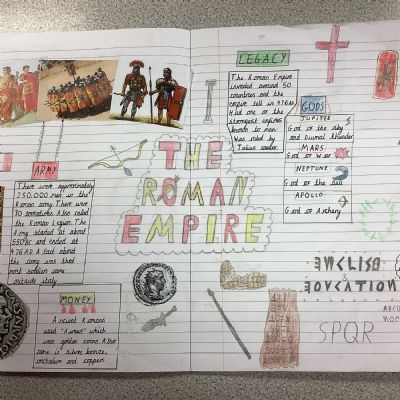 LEGACY
The Roman Empire
invaded around 50
countries and the
empire fell in 476AD.
Had one of the
strongest empires
known to man.
Was ruled by
Julius caesar.
GODS
JUPITER
God of the sky
and
thunder
MARS
God of war
NEPTUNE
God of the sea
APOLLO
God of Archery
ARMY
There were approximately
250,000 men in the
Roman army. There were
30
Also called
the Roman Legion. The
Army started at about
550BC and ended at
476AD. A fact about
the army was that
most soldiers came
outside italy.
THE
ROMAN
EMPIRE
MONEY
Ancient Romans
used "Aureus" which
was golden coins. Also
came in silver, bronze,
orichalcum and coppers
ENGLISH
&
EDUCATION
SPQR